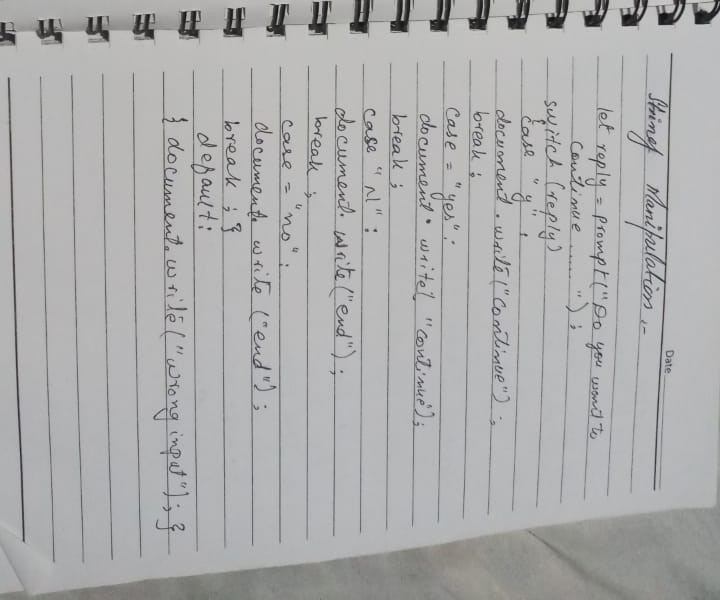 Date
String Manipulation :-
let reply = prompt("Do you want to
continue ...... ");
switch (reply)
case "y :
document.write("continue");
break;
case = "yes":
document.write( "continue");
break;
case "N":
document.write("end");
break;
case = "no":
document.write ("end");
break; }
default:
{ document.write("wrong input"); }